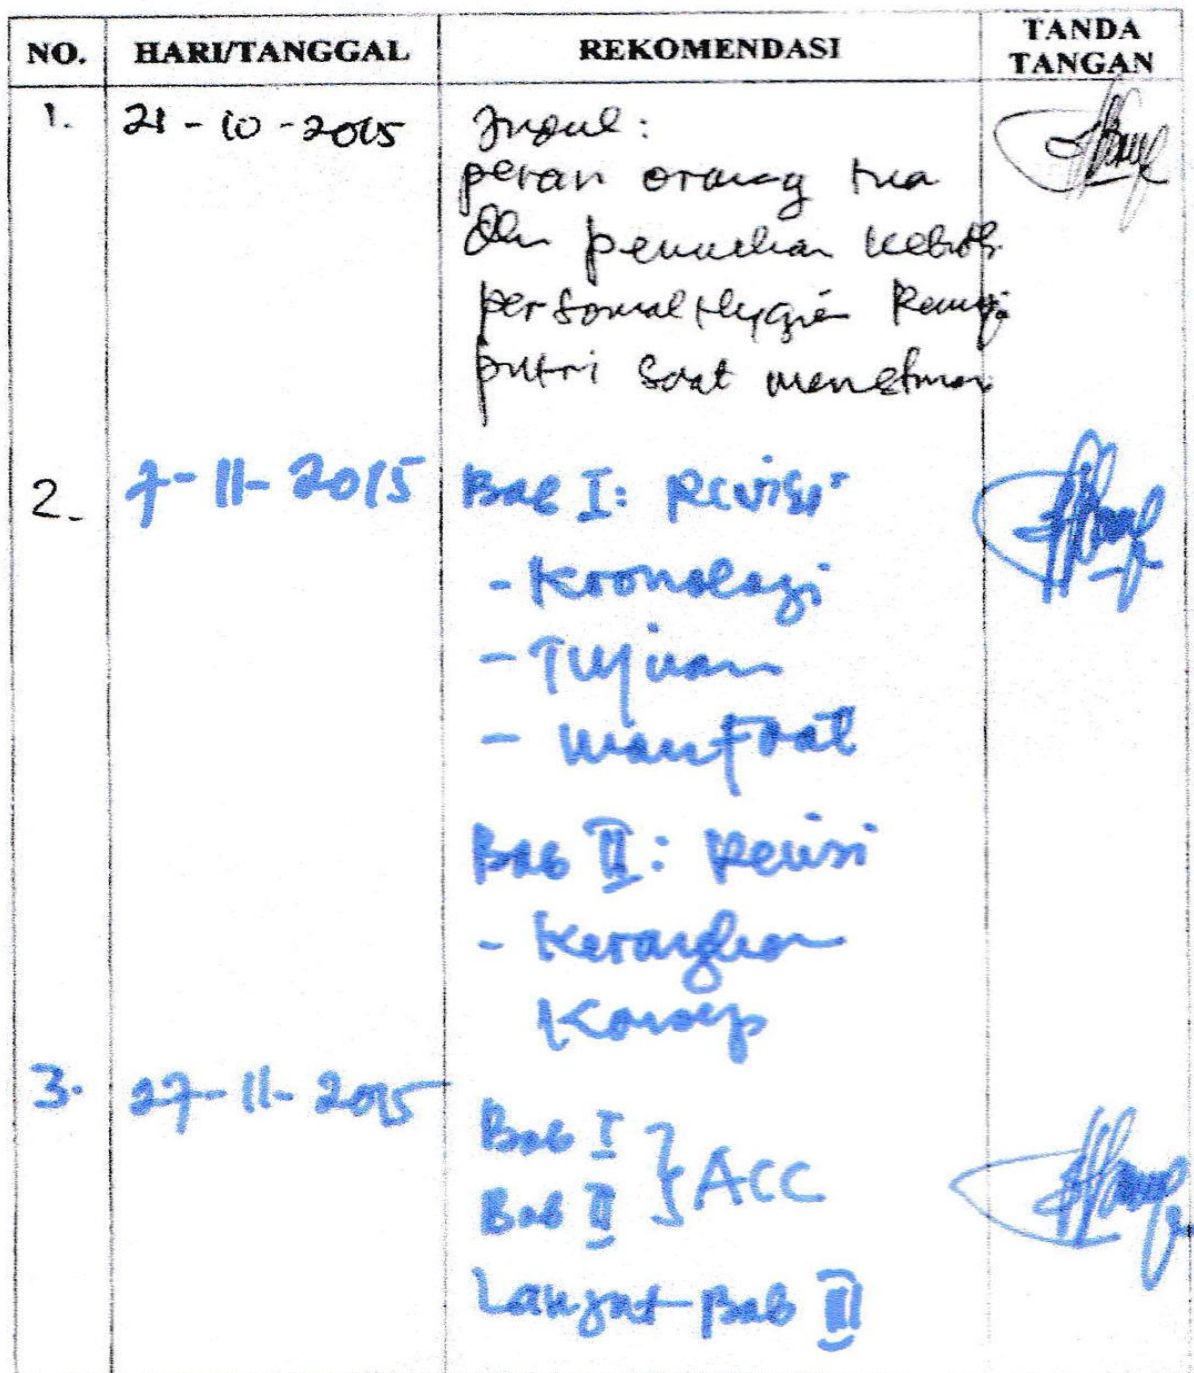 NO. HARI/TANGGAL REKOMENDASI TANDA TANGAN
1. 21-10-2015 Judul:
peran orang tua
dlm pemenuhan kebth
personal Hygien Remaja
putri saat menstruasi
2. 7-11-2015 Bab I: Revisi
- Kronologi
- Tujuan
- Manfaat
Bab II: Revisi
- Kerangka
Konsep
3. 27-11-2015
Bab I } ACC
Bab II
Lanjut Bab III